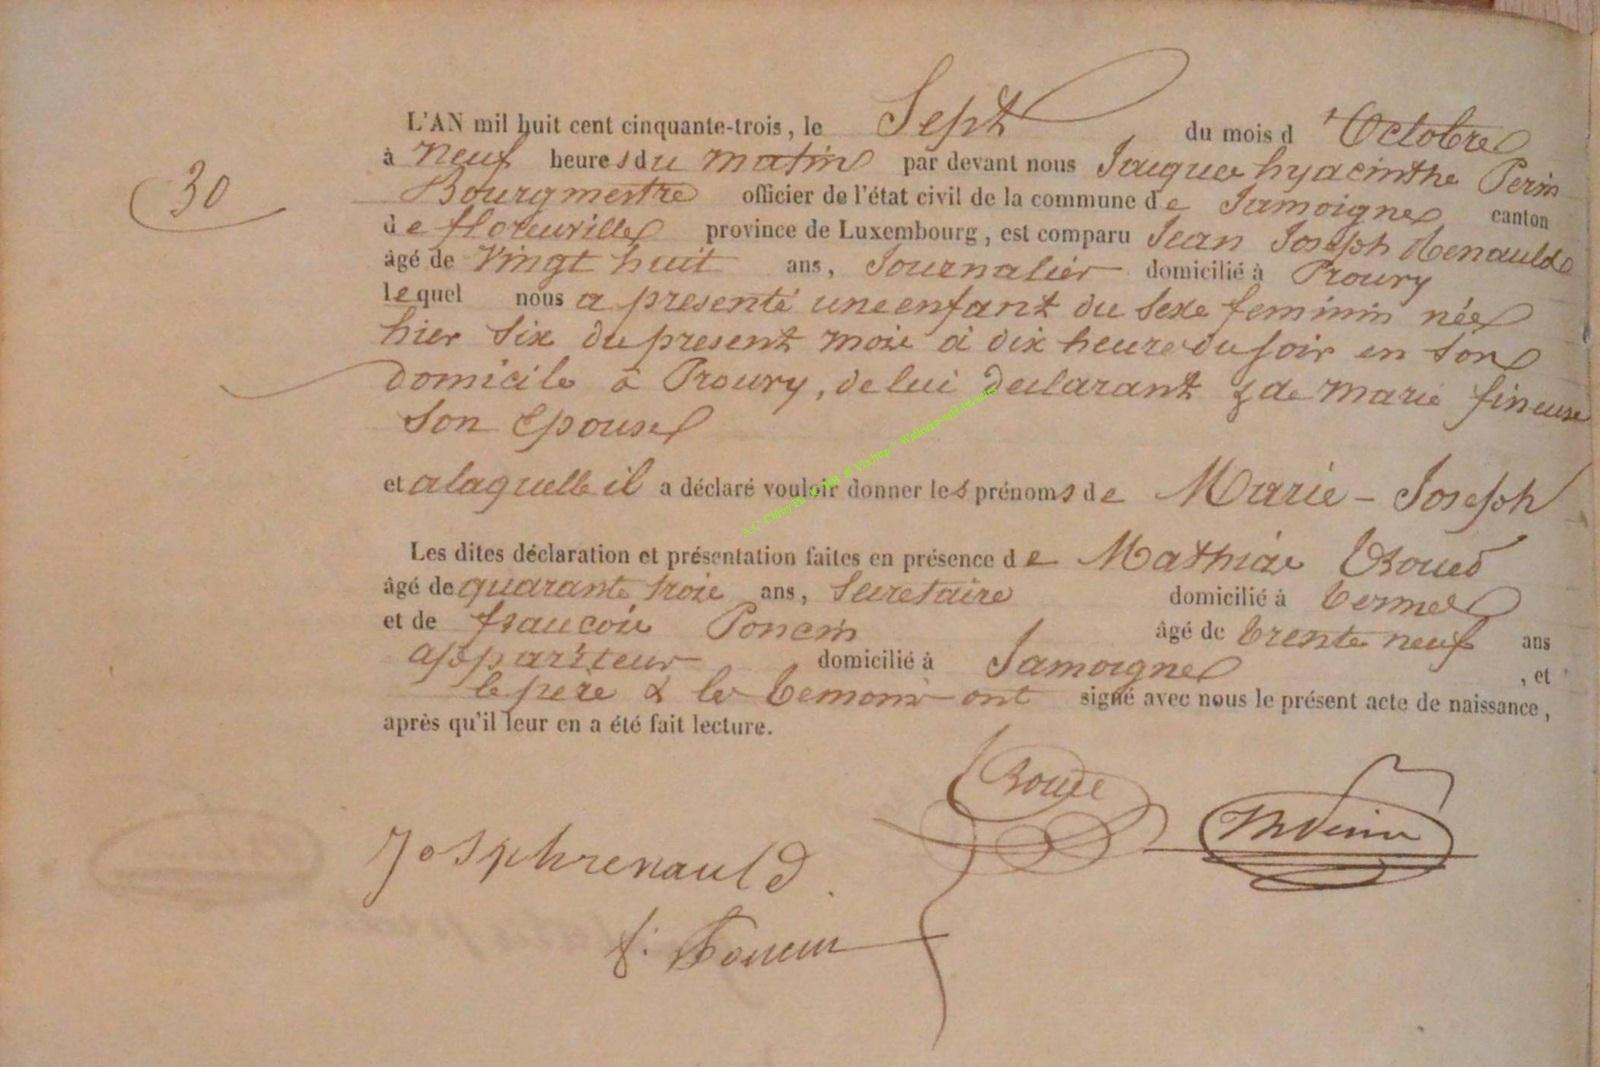 30
L'AN mil huit cent cinquante-trois, le Sept du mois d'Octobre
à neuf heures du matin par devant nous Jaques hyacinthe Perin
Bourgmestre officier de l'état civil de la commune de Jamoigne canton
de florenville province de Luxembourg, est comparu Jean Joseph Renauld
âgé de Vingt huit ans, Journalier domicilié à Prouvy
lequel nous a presenté une enfant du Sexe feminin née
hier Six du present mois à dix heures du soir en Son
domicile à Prouvy, de lui declarant & de marie fineuse
Son Epouse
et a laquelle il a déclaré vouloir donner les prénoms de Marie - Joseph
Les dites déclaration et présentation faites en présence de Mathias
âgé de quarante trois ans, Secretaire domicilié à termes
et de francois Poncin âgé de trente neuf ans
appariteur domicilié à Jamoigne, et
le pere & les temoins ont signé avec nous le présent acte de naissance,
après qu'il leur en a été fait lecture.
Josphrenauld
f. Poncin